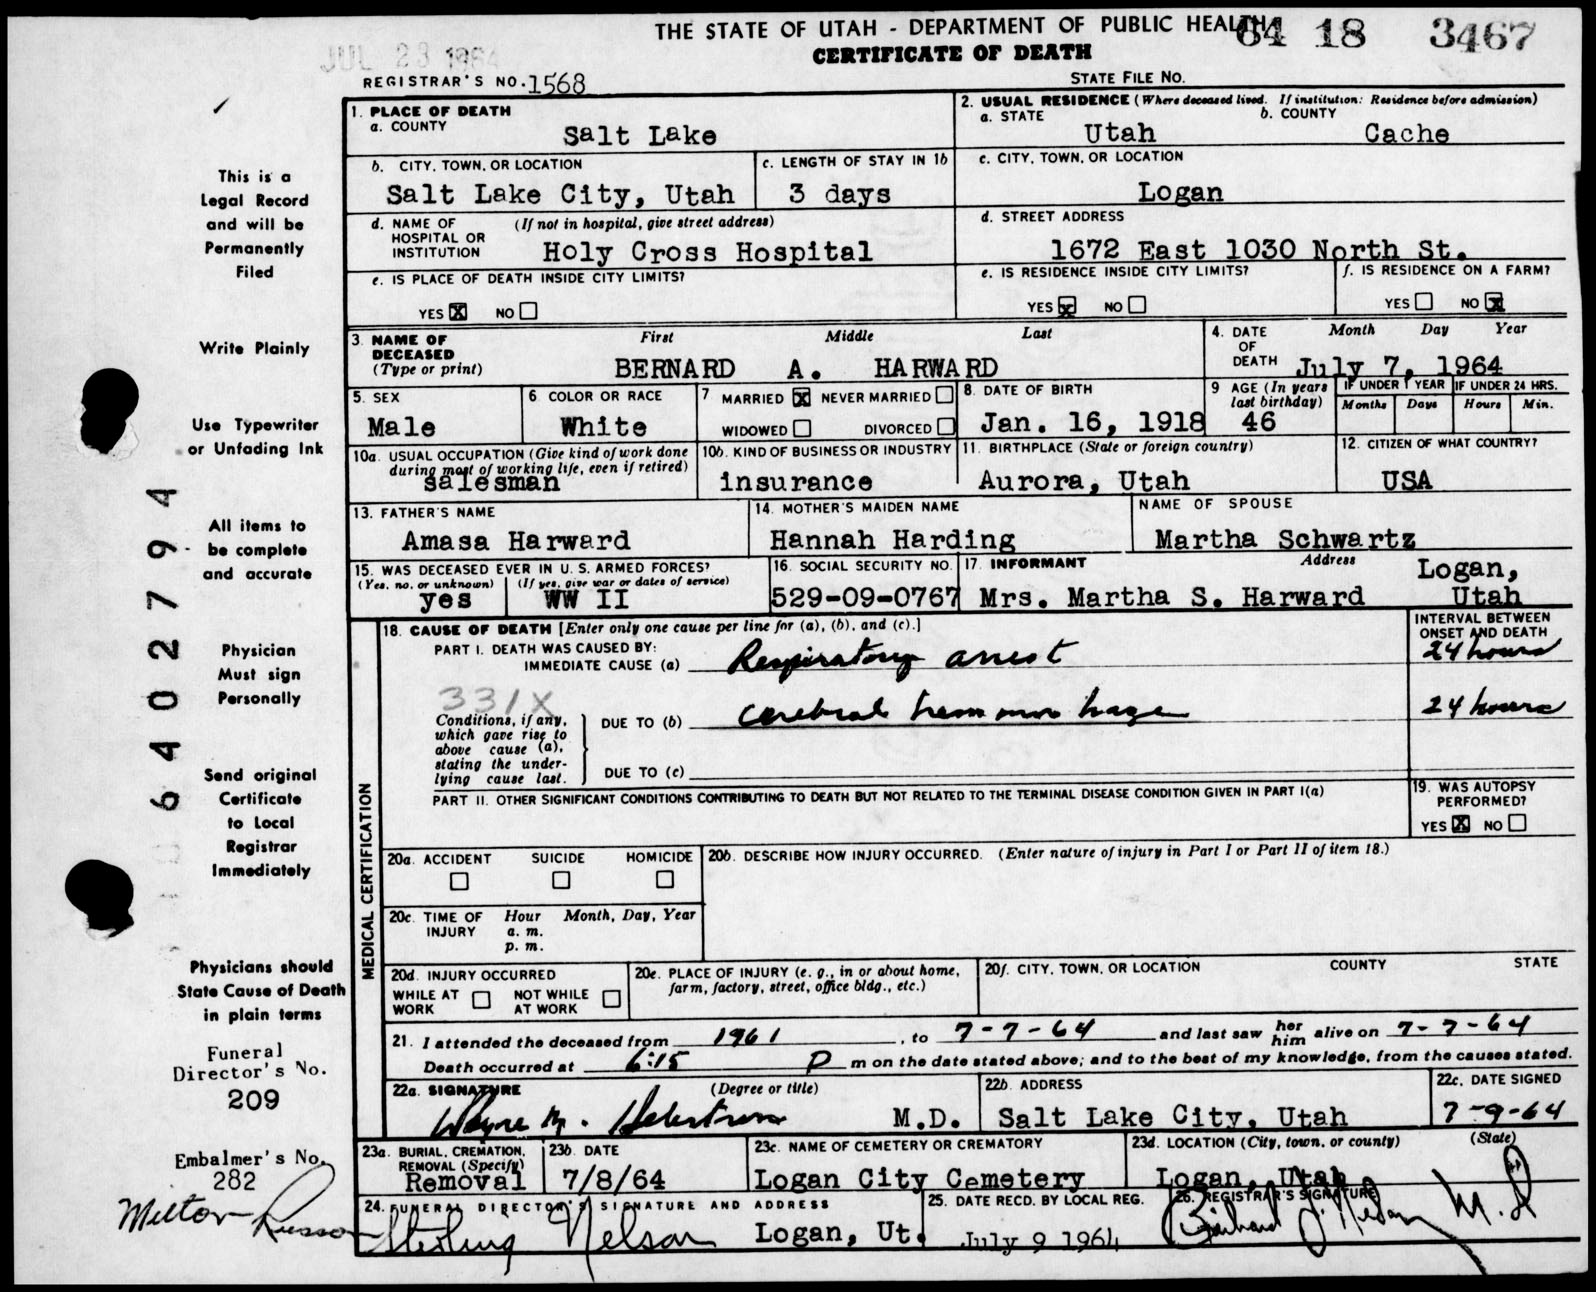 THE STATE OF UTAH - DEPARTMENT OF PUBLIC HEALTH
64 18 3467
JUL 23 1964
CERTIFICATE OF DEATH
REGISTRAR'S NO. 1568
STATE FILE NO.
1. PLACE OF DEATH
a. COUNTY
Salt Lake
2. USUAL RESIDENCE (Where deceased lived. If institution: Residence before admission)
a. STATE b. COUNTY
Utah Cache
b. CITY, TOWN, OR LOCATION
Salt Lake City, Utah
c. LENGTH OF STAY IN 1b
3 days
c. CITY, TOWN, OR LOCATION
Logan
d. NAME OF HOSPITAL OR INSTITUTION (If not in hospital, give street address)
Holy Cross Hospital
d. STREET ADDRESS
1672 East 1030 North St.
e. IS PLACE OF DEATH INSIDE CITY LIMITS?
YES X NO
e. IS RESIDENCE INSIDE CITY LIMITS?
YES X NO
f. IS RESIDENCE ON A FARM?
YES NO X
3. NAME OF DECEASED (Type or print)
First Middle Last
BERNARD A. HARWARD
4. DATE OF DEATH
Month Day Year
July 7, 1964
5. SEX
Male
6 COLOR OR RACE
White
7 MARRIED X NEVER MARRIED
WIDOWED DIVORCED
8. DATE OF BIRTH
Jan. 16, 1918
9 AGE (In years last birthday)
46
IF UNDER 1 YEAR
Months Days
IF UNDER 24 HRS.
Hours Min.
10a. USUAL OCCUPATION (Give kind of work done during most of working life, even if retired)
salesman
10b. KIND OF BUSINESS OR INDUSTRY
insurance
11. BIRTHPLACE (State or foreign country)
Aurora, Utah
12. CITIZEN OF WHAT COUNTRY?
USA
13. FATHER'S NAME
Amasa Harward
14. MOTHER'S MAIDEN NAME
Hannah Harding
NAME OF SPOUSE
Martha Schwartz
15. WAS DECEASED EVER IN U. S. ARMED FORCES?
(Yes, no, or unknown) (If yes, give war or dates of service)
yes WW II
16. SOCIAL SECURITY NO.
529-09-0767
17. INFORMANT Address
Mrs. Martha S. Harward Logan, Utah
MEDICAL CERTIFICATION
18. CAUSE OF DEATH [Enter only one cause per line for (a), (b), and (c).]
INTERVAL BETWEEN ONSET AND DEATH
PART I. DEATH WAS CAUSED BY:
IMMEDIATE CAUSE (a) Respiratory arrest 24 hours
331X
Conditions, if any, which gave rise to above cause (a), stating the underlying cause last.
DUE TO (b) cerebral hemmorrhage 24 hours
DUE TO (c)
PART II. OTHER SIGNIFICANT CONDITIONS CONTRIBUTING TO DEATH BUT NOT RELATED TO THE TERMINAL DISEASE CONDITION GIVEN IN PART I(a)
19. WAS AUTOPSY PERFORMED?
YES X NO
20a. ACCIDENT SUICIDE HOMICIDE
20b. DESCRIBE HOW INJURY OCCURRED. (Enter nature of injury in Part I or Part II of item 18.)
20c. TIME OF INJURY Hour Month, Day, Year
a. m.
p. m.
20d. INJURY OCCURRED
WHILE AT WORK NOT WHILE AT WORK
20e. PLACE OF INJURY (e. g., in or about home, farm, factory, street, office bldg., etc.)
20f. CITY, TOWN, OR LOCATION COUNTY STATE
21. I attended the deceased from 1961, to 7-7-64 and last saw her him alive on 7-7-64
Death occurred at 6:15 P m on the date stated above; and to the best of my knowledge, from the causes stated.
22a. SIGNATURE (Degree or title)
Wayne M. M.D.
22b. ADDRESS
Salt Lake City, Utah
22c. DATE SIGNED
7-9-64
23a. BURIAL, CREMATION, REMOVAL (Specify)
Removal
23b. DATE
7/8/64
23c. NAME OF CEMETERY OR CREMATORY
Logan City Cemetery
23d. LOCATION (City, town, or county) (State)
Logan, Utah
24. FUNERAL DIRECTOR'S SIGNATURE AND ADDRESS
Sterling Nelson Logan, Ut.
25. DATE RECD. BY LOCAL REG.
July 9 1964
26. REGISTRAR'S SIGNATURE
M.D
This is a
Legal Record
and will be
Permanently
Filed
Write Plainly
Use Typewriter
or Unfading Ink
All items to
be complete
and accurate
Physician
Must sign
Personally
Send original
Certificate
to Local
Registrar
Immediately
Physicians should
State Cause of Death
in plain terms
Funeral
Director's No.
209
Embalmer's No.
282
Milton
64 02794